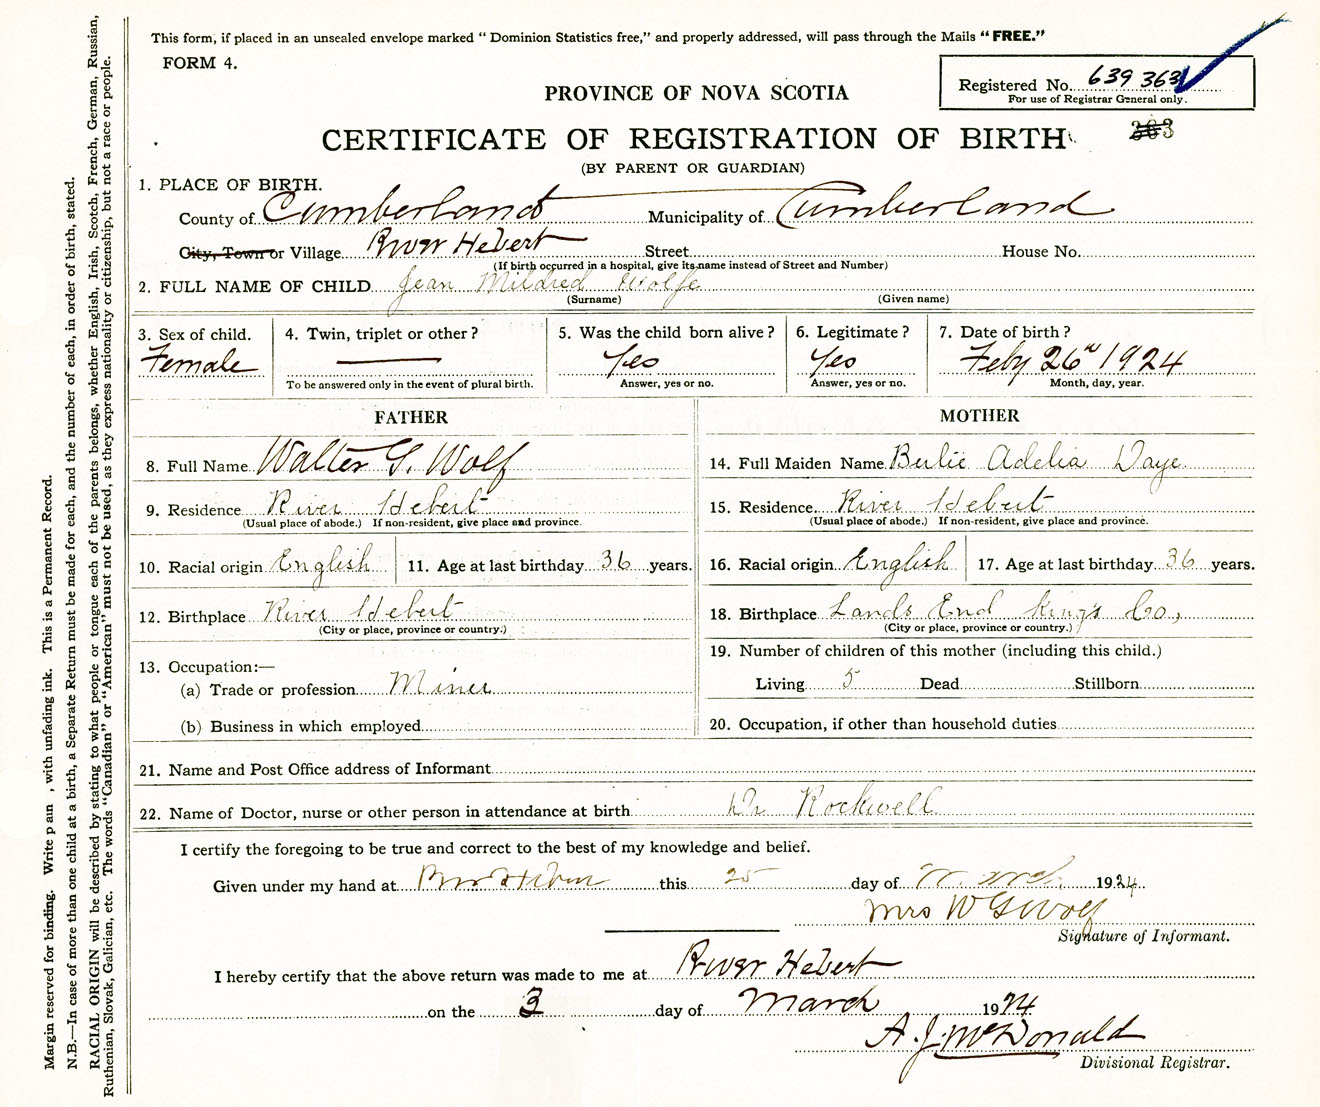 This form, if placed in an unsealed envelope marked “ Dominion Statistics free,” and properly addressed, will pass through the Mails “ FREE.”
FORM 4.
Registered No. 639 363
For use of Registrar General only.
PROVINCE OF NOVA SCOTIA
CERTIFICATE OF REGISTRATION OF BIRTH
(BY PARENT OR GUARDIAN)
1. PLACE OF BIRTH.
County of Cumberland Municipality of Cumberland
City, Town or Village River Hebert Street House No.
(If birth occurred in a hospital, give its name instead of Street and Number)
2. FULL NAME OF CHILD Jean Mildred Wolfe
(Surname) (Given name)
3. Sex of child. 4. Twin, triplet or other ? 5. Was the child born alive ? 6. Legitimate ? 7. Date of birth ?
Female — Yes Yes Feby 26th 1924
To be answered only in the event of plural birth. Answer, yes or no. Answer, yes or no. Month, day, year.
FATHER
8. Full Name Walter G. Wolf
9. Residence River Hebert
(Usual place of abode.) If non-resident, give place and province.
10. Racial origin English 11. Age at last birthday 36 years.
12. Birthplace River Hebert
(City or place, province or country.)
13. Occupation:—
(a) Trade or profession Miner
(b) Business in which employed
MOTHER
14. Full Maiden Name Bulie Adelia Daye
15. Residence River Hebert
(Usual place of abode.) If non-resident, give place and province.
16. Racial origin English 17. Age at last birthday 36 years.
18. Birthplace Lands End Kings Co,
(City or place, province or country.)
19. Number of children of this mother (including this child.)
Living 5 Dead Stillborn
20. Occupation, if other than household duties
21. Name and Post Office address of Informant
22. Name of Doctor, nurse or other person in attendance at birth Dr Rockwell
I certify the foregoing to be true and correct to the best of my knowledge and belief.
Given under my hand at River Hebert this 25 day of March 1924
Mrs W G Wolf
Signature of Informant.
I hereby certify that the above return was made to me at River Hebert
on the 3 day of March 1924
A. J. McDonald
Divisional Registrar.
Margin reserved for binding. Write p an , with unfading ink. This is a Permanent Record.
N.B.—In case of more than one child at a birth, a Separate Return must be made for each, and the number of each, in order of birth, stated.
RACIAL ORIGIN will be described by stating to what people or tongue each of the parents belongs, whether English, Irish, Scotch, French, German, Russian,
Ruthenian, Slovak, Galician, etc. The words “Canadian” or “American” must not be used, as they express nationality or citizenship, but not a race or people.